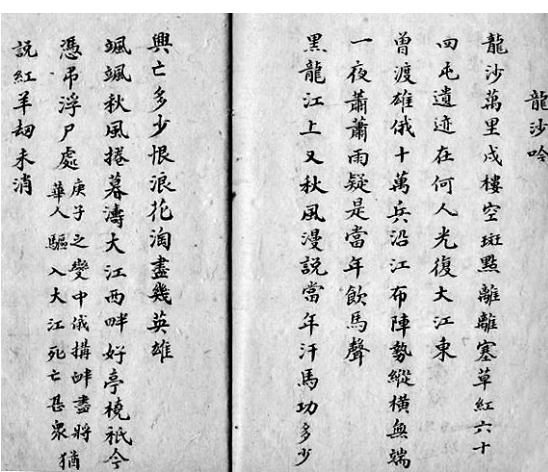 龍沙吟
龍沙萬里戍樓空斑點離離塞草紅六十
四屯遺迹在何人光復大江東
曾渡雄俄十萬兵沿江布陣勢縱橫無端
一夜蕭蕭雨疑是當年飲馬聲
黑龍江上又秋風漫說當年汗馬功多少
興亡多少恨浪花淘盡幾英雄
颯颯秋風捲暮濤大江西畔好亭橈祇今
憑弔浮尸處庚子之變中俄搆衅盡將華人驅入大江死亡甚衆猶
說紅羊劫未消